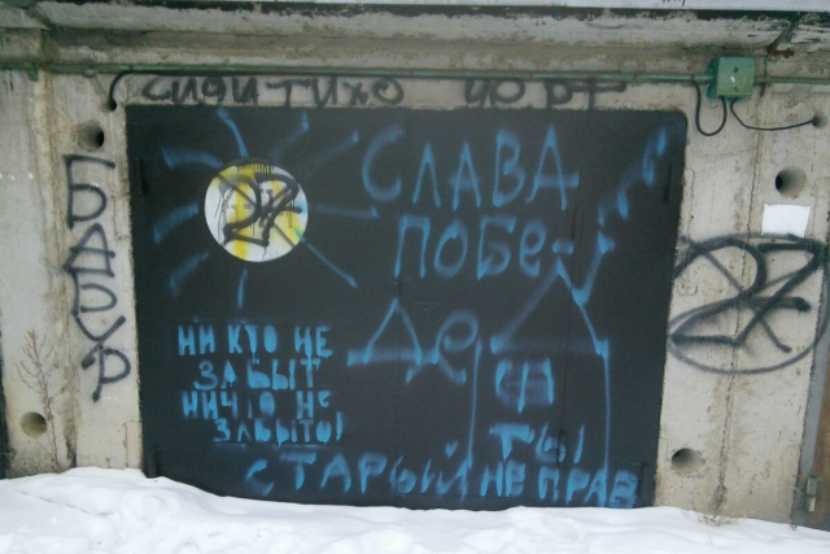 СИДИ ТИХО ЧОРТ
БАБУР
27
СЛАВА
ПОБЕ-
ДЕ
НИ КТО НЕ
ЗАБЫТ
НИЧТО НЕ
ЗАБЫТО!
ТЫ
СТАРЫЙ НЕ ПРАВ
27